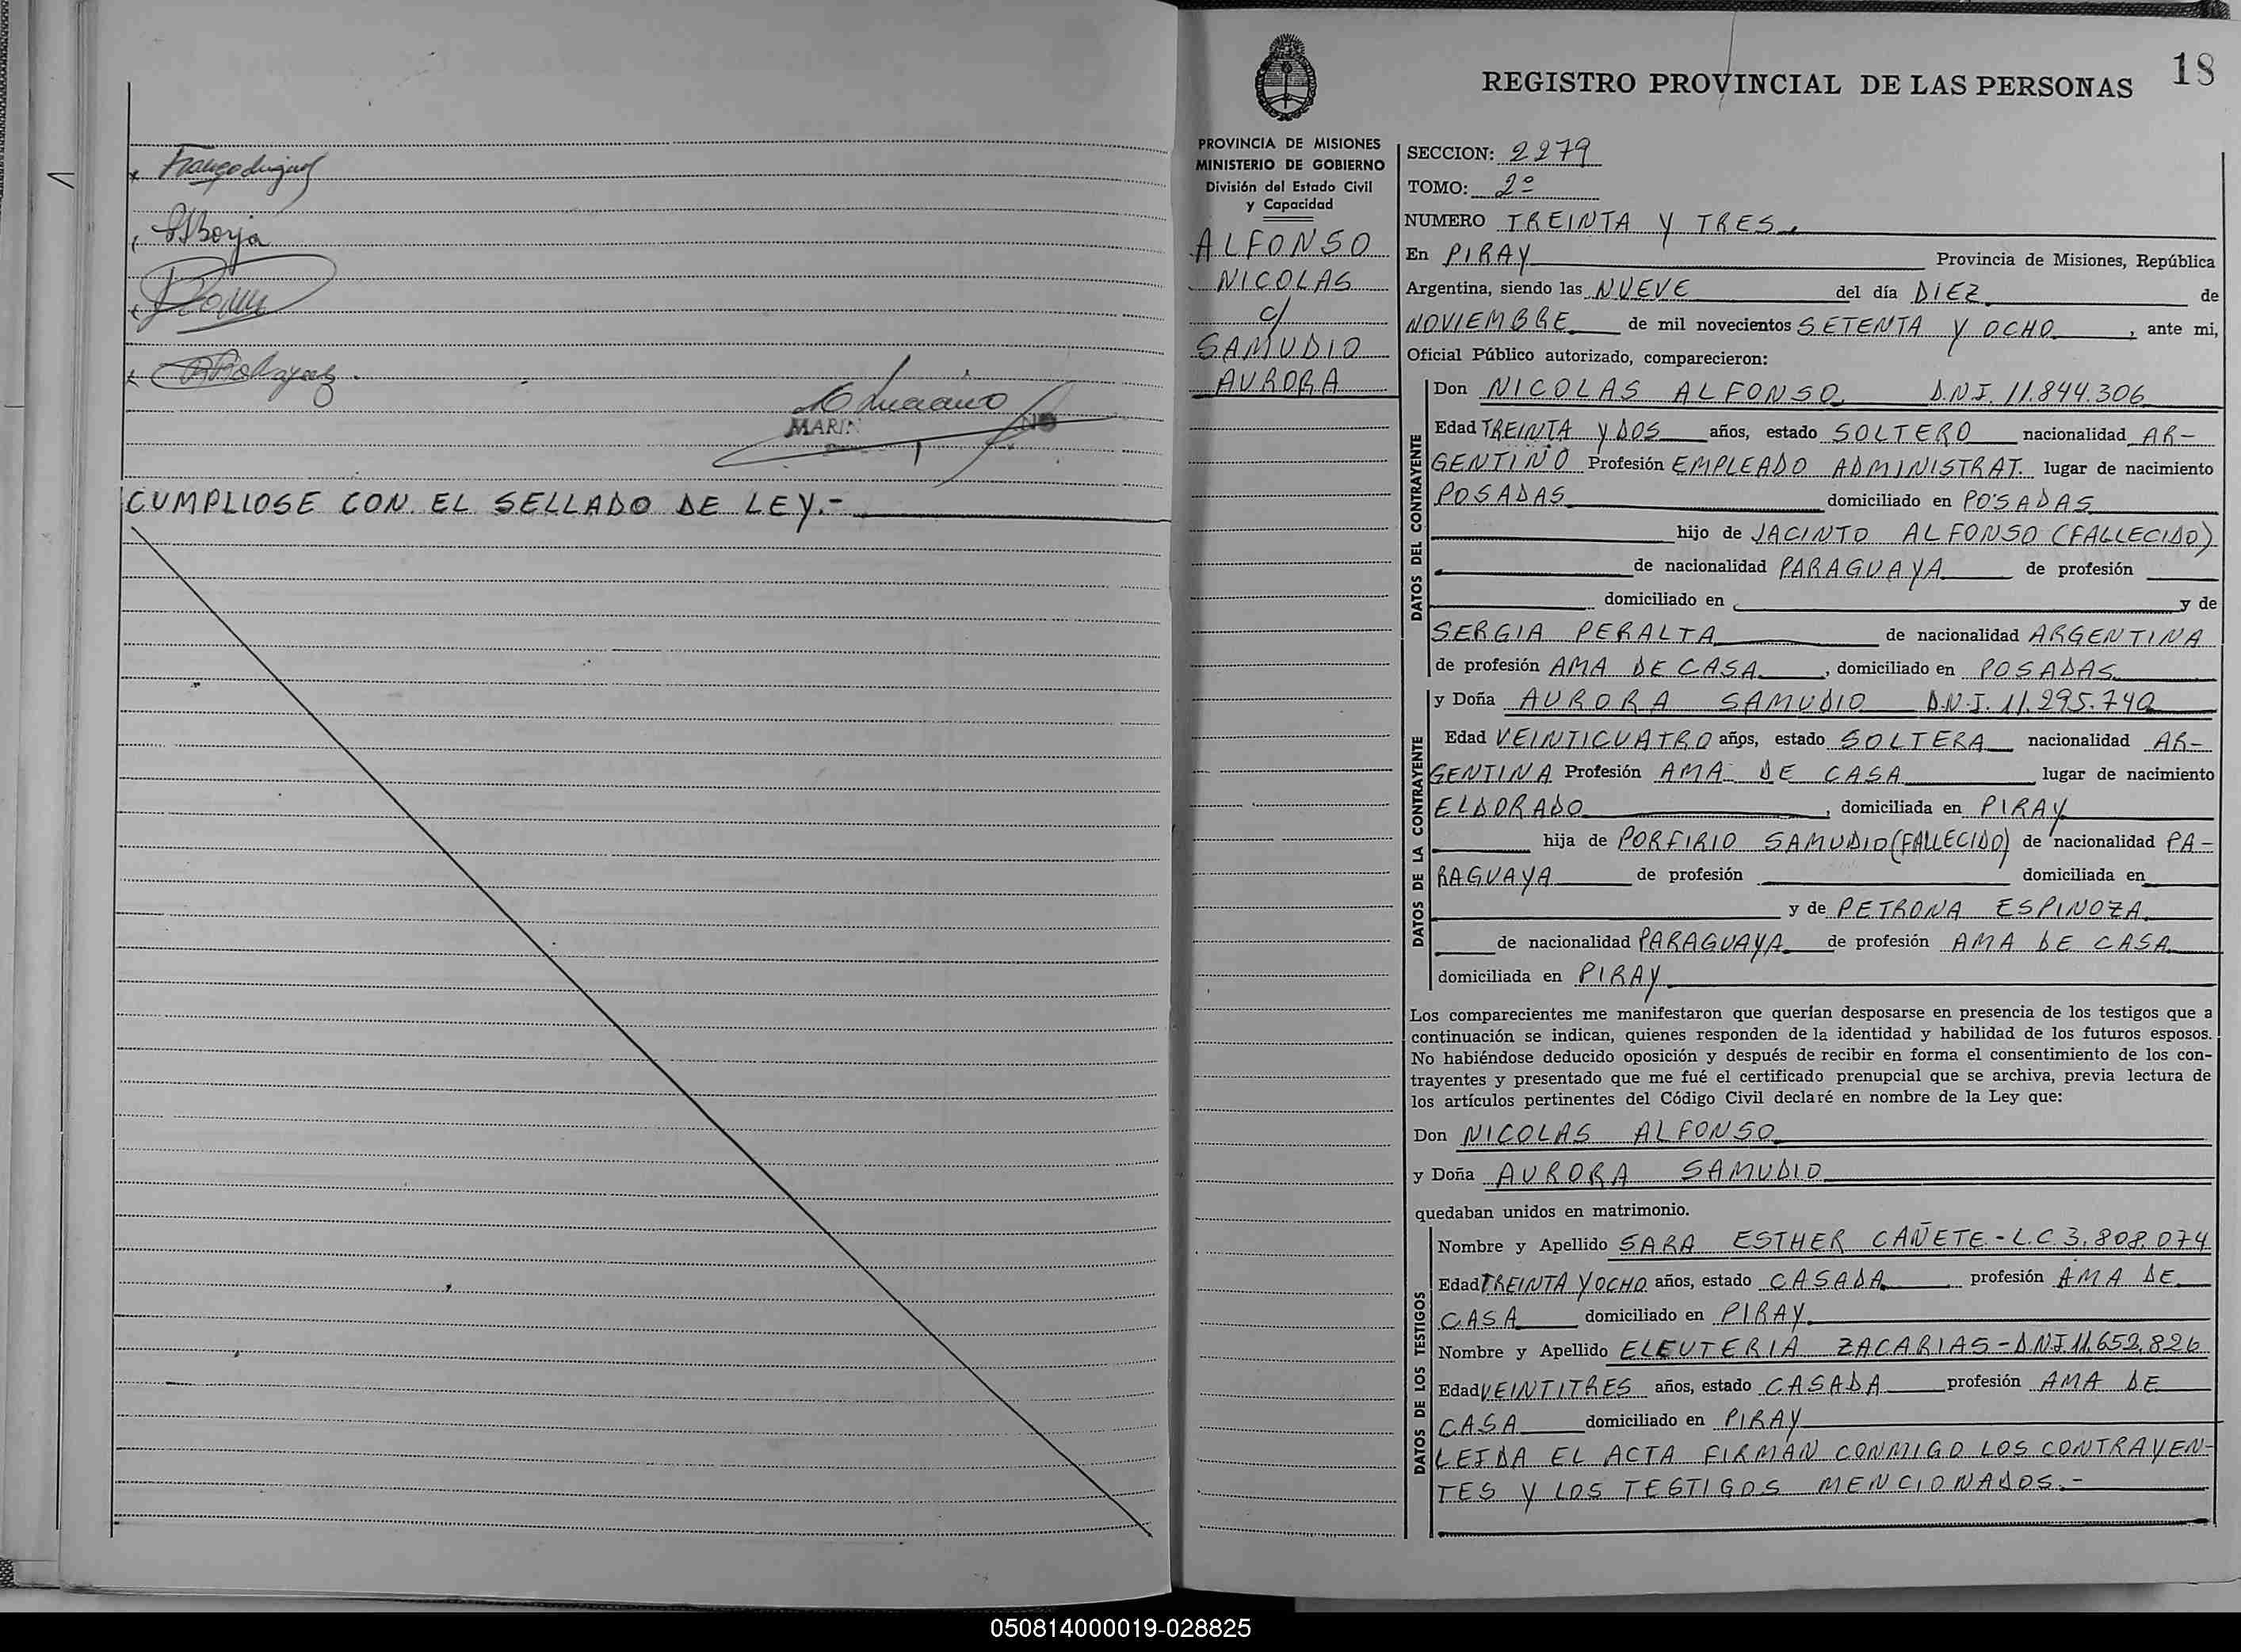 Borja
MARIN
CUMPLIOSE CON EL SELLADO DE LEY.-
18
REGISTRO PROVINCIAL DE LAS PERSONAS
PROVINCIA DE MISIONES
MINISTERIO DE GOBIERNO
División del Estado Civil
y Capacidad
ALFONSO
NICOLAS
c/
SAMUDIO
AURORA
SECCION: 2279
TOMO: 2º
NUMERO TREINTA Y TRES
En PIRAY Provincia de Misiones, República
Argentina, siendo las NUEVE del día DIEZ de
NOVIEMBRE de mil novecientos SETENTA Y OCHO, ante mi,
Oficial Público autorizado, comparecieron:
DATOS DEL CONTRAYENTE
Don NICOLAS ALFONSO D.N.I. 11.844.306
Edad TREINTA Y DOS años, estado SOLTERO nacionalidad AR-
GENTINO Profesión EMPLEADO ADMINISTRAT. lugar de nacimiento
POSADAS domiciliado en POSADAS
hijo de JACINTO ALFONSO (FALLECIDO)
de nacionalidad PARAGUAYA de profesión
domiciliado en y de
SERGIA PERALTA de nacionalidad ARGENTINA
de profesión AMA DE CASA, domiciliado en POSADAS
DATOS DE LA CONTRAYENTE
y Doña AURORA SAMUDIO D.N.I. 11.295.740
Edad VEINTICUATRO años, estado SOLTERA nacionalidad AR-
GENTINA Profesión AMA DE CASA lugar de nacimiento
ELDORADO, domiciliada en PIRAY
hija de PORFIRIO SAMUDIO (FALLECIDO) de nacionalidad PA-
RAGUAYA de profesión domiciliada en
y de PETRONA ESPINOZA
de nacionalidad PARAGUAYA de profesión AMA DE CASA
domiciliada en PIRAY
Los comparecientes me manifestaron que querían desposarse en presencia de los testigos que a
continuación se indican, quienes responden de la identidad y habilidad de los futuros esposos.
No habiéndose deducido oposición y después de recibir en forma el consentimiento de los con-
trayentes y presentado que me fué el certificado prenupcial que se archiva, previa lectura de
los artículos pertinentes del Código Civil declaré en nombre de la Ley que:
Don NICOLAS ALFONSO
y Doña AURORA SAMUDIO
quedaban unidos en matrimonio.
DATOS DE LOS TESTIGOS
Nombre y Apellido SARA ESTHER CAÑETE - L.C. 3.808.074
Edad TREINTA Y OCHO años, estado CASADA profesión AMA DE
CASA domiciliado en PIRAY
Nombre y Apellido ELEUTERIA ZACARIAS - DNI 11.652.826
Edad VEINTITRES años, estado CASADA profesión AMA DE
CASA domiciliado en PIRAY
LEIDA EL ACTA FIRMAN CONMIGO LOS CONTRAYEN-
TES Y LOS TESTIGOS MENCIONADOS.-
050814000019-028825